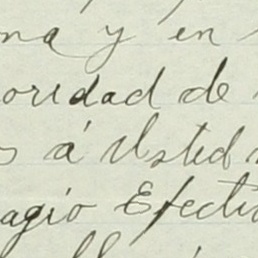 na y en
oridad de
s á Usted
agio Efecti